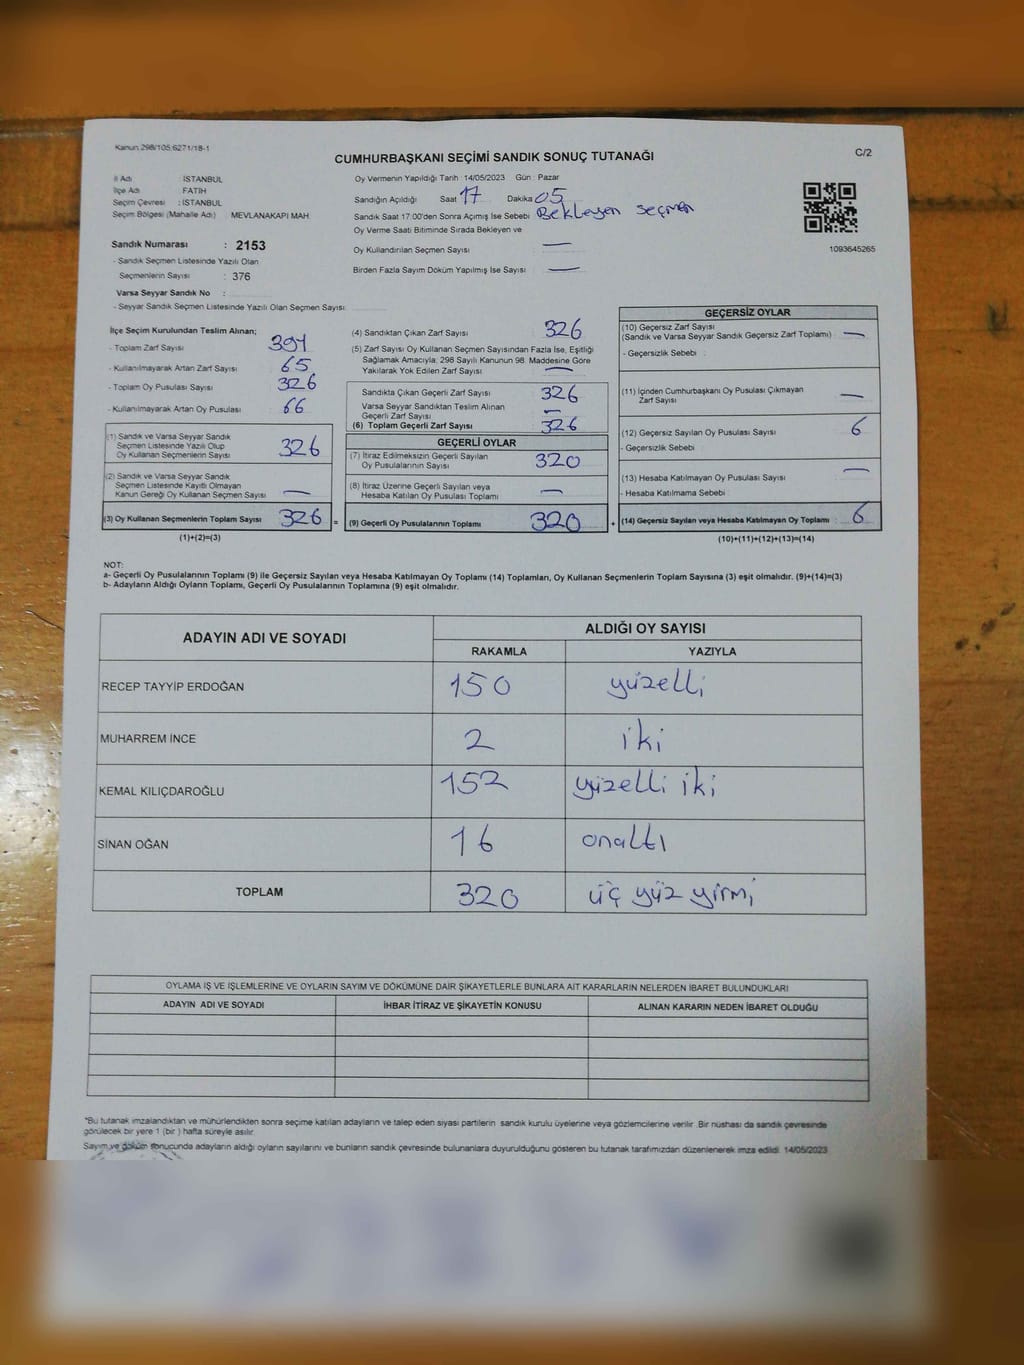 Kanun 298/105;6271/18-1
CUMHURBAŞKANI SEÇİMİ SANDIK SONUÇ TUTANAĞI
C/2
İl Adı : İSTANBUL
İlçe Adı : FATİH
Seçim Çevresi : İSTANBUL
Seçim Bölgesi (Mahalle Adı) : MEVLANAKAPI MAH
Sandık Numarası : 2153
- Sandık Seçmen Listesinde Yazılı Olan
Seçmenlerin Sayısı : 376
Varsa Seyyar Sandık No :
- Seyyar Sandık Seçmen Listesinde Yazılı Olan Seçmen Sayısı:
Oy Vermenin Yapıldığı Tarih : 14/05/2023 Gün : Pazar
Sandığın Açıldığı Saat 17 Dakika 05
Sandık Saat 17:00'den Sonra Açımış İse Sebebi Bekleyen seçmen
Oy Verme Saati Bitiminde Sırada Bekleyen ve
Oy Kullandırılan Seçmen Sayısı —
Birden Fazla Sayım Döküm Yapılmış İse Sayısı —
1093645265
İlçe Seçim Kurulundan Teslim Alınan;
- Toplam Zarf Sayısı 391
- Kullanılmayarak Artan Zarf Sayısı 65
- Toplam Oy Pusulası Sayısı 326
- Kullanılmayarak Artan Oy Pusulası 66
(1) Sandık ve Varsa Seyyar Sandık
Seçmen Listesinde Yazılı Olup
Oy Kullanan Seçmenlerin Sayısı 326
(2) Sandık ve Varsa Seyyar Sandık
Seçmen Listesinde Kayıtlı Olmayan
Kanun Gereği Oy Kullanan Seçmen Sayısı —
(3) Oy Kullanan Seçmenlerin Toplam Sayısı 326 =
(1)+(2)=(3)
(4) Sandıktan Çıkan Zarf Sayısı 326
(5) Zarf Sayısı Oy Kullanan Seçmen Sayısından Fazla İse, Eşitliği
Sağlamak Amacıyla, 298 Sayılı Kanunun 98. Maddesine Göre
Yakılarak Yok Edilen Zarf Sayısı —
Sandıkta Çıkan Geçerli Zarf Sayısı 326
Varsa Seyyar Sandıktan Teslim Alınan
Geçerli Zarf Sayısı —
(6) Toplam Geçerli Zarf Sayısı 326
GEÇERLİ OYLAR
(7) İtiraz Edilmeksizin Geçerli Sayılan
Oy Pusulalarının Sayısı 320
(8) İtiraz Üzerine Geçerli Sayılan veya
Hesaba Katılan Oy Pusulası Toplamı —
(9) Geçerli Oy Pusulalarının Toplamı 320 +
GEÇERSİZ OYLAR
(10) Geçersiz Zarf Sayısı
(Sandık ve Varsa Seyyar Sandık Geçersiz Zarf Toplamı) —
- Geçersizlik Sebebi :
(11) İçinden Cumhurbaşkanı Oy Pusulası Çıkmayan
Zarf Sayısı —
(12) Geçersiz Sayılan Oy Pusulası Sayısı 6
- Geçersizlik Sebebi
(13) Hesaba Katılmayan Oy Pusulası Sayısı —
- Hesaba Katılmama Sebebi
(14) Geçersiz Sayılan veya Hesaba Katılmayan Oy Toplamı 6
(10)+(11)+(12)+(13)=(14)
NOT:
a- Geçerli Oy Pusulalarının Toplamı (9) ile Geçersiz Sayılan veya Hesaba Katılmayan Oy Toplamı (14) Toplamları, Oy Kullanan Seçmenlerin Toplam Sayısına (3) eşit olmalıdır. (9)+(14)=(3)
b- Adayların Aldığı Oyların Toplamı, Geçerli Oy Pusulalarının Toplamına (9) eşit olmalıdır.
ADAYIN ADI VE SOYADI
ALDIĞI OY SAYISI
RAKAMLA YAZIYLA
RECEP TAYYİP ERDOĞAN 150 yüzelli
MUHARREM İNCE 2 iki
KEMAL KILIÇDAROĞLU 152 yüzelli iki
SİNAN OĞAN 16 onaltı
TOPLAM 320 üç yüz yirmi
OYLAMA İŞ VE İŞLEMLERİNE VE OYLARIN SAYIM VE DÖKÜMÜNE DAİR ŞİKAYETLERLE BUNLARA AİT KARARLARIN NELERDEN İBARET BULUNDUKLARI
ADAYIN ADI VE SOYADI İHBAR İTİRAZ VE ŞİKAYETİN KONUSU ALINAN KARARIN NEDEN İBARET OLDUĞU
*Bu tutanak imzalandıktan ve mühürlendikten sonra seçime katılan adayların ve talep eden siyasi partilerin sandık kurulu üyelerine veya gözlemcilerine verilir. Bir nüshası da sandık çevresinde
görülecek bir yere 1 (bir ) hafta süreyle asılır.
Sayım ve döküm sonucunda adayların aldığı oyların sayılarını ve bunların sandık çevresinde bulunanlara duyurulduğunu gösteren bu tutanak tarafımızdan düzenlenerek imza edildi. 14/05/2023